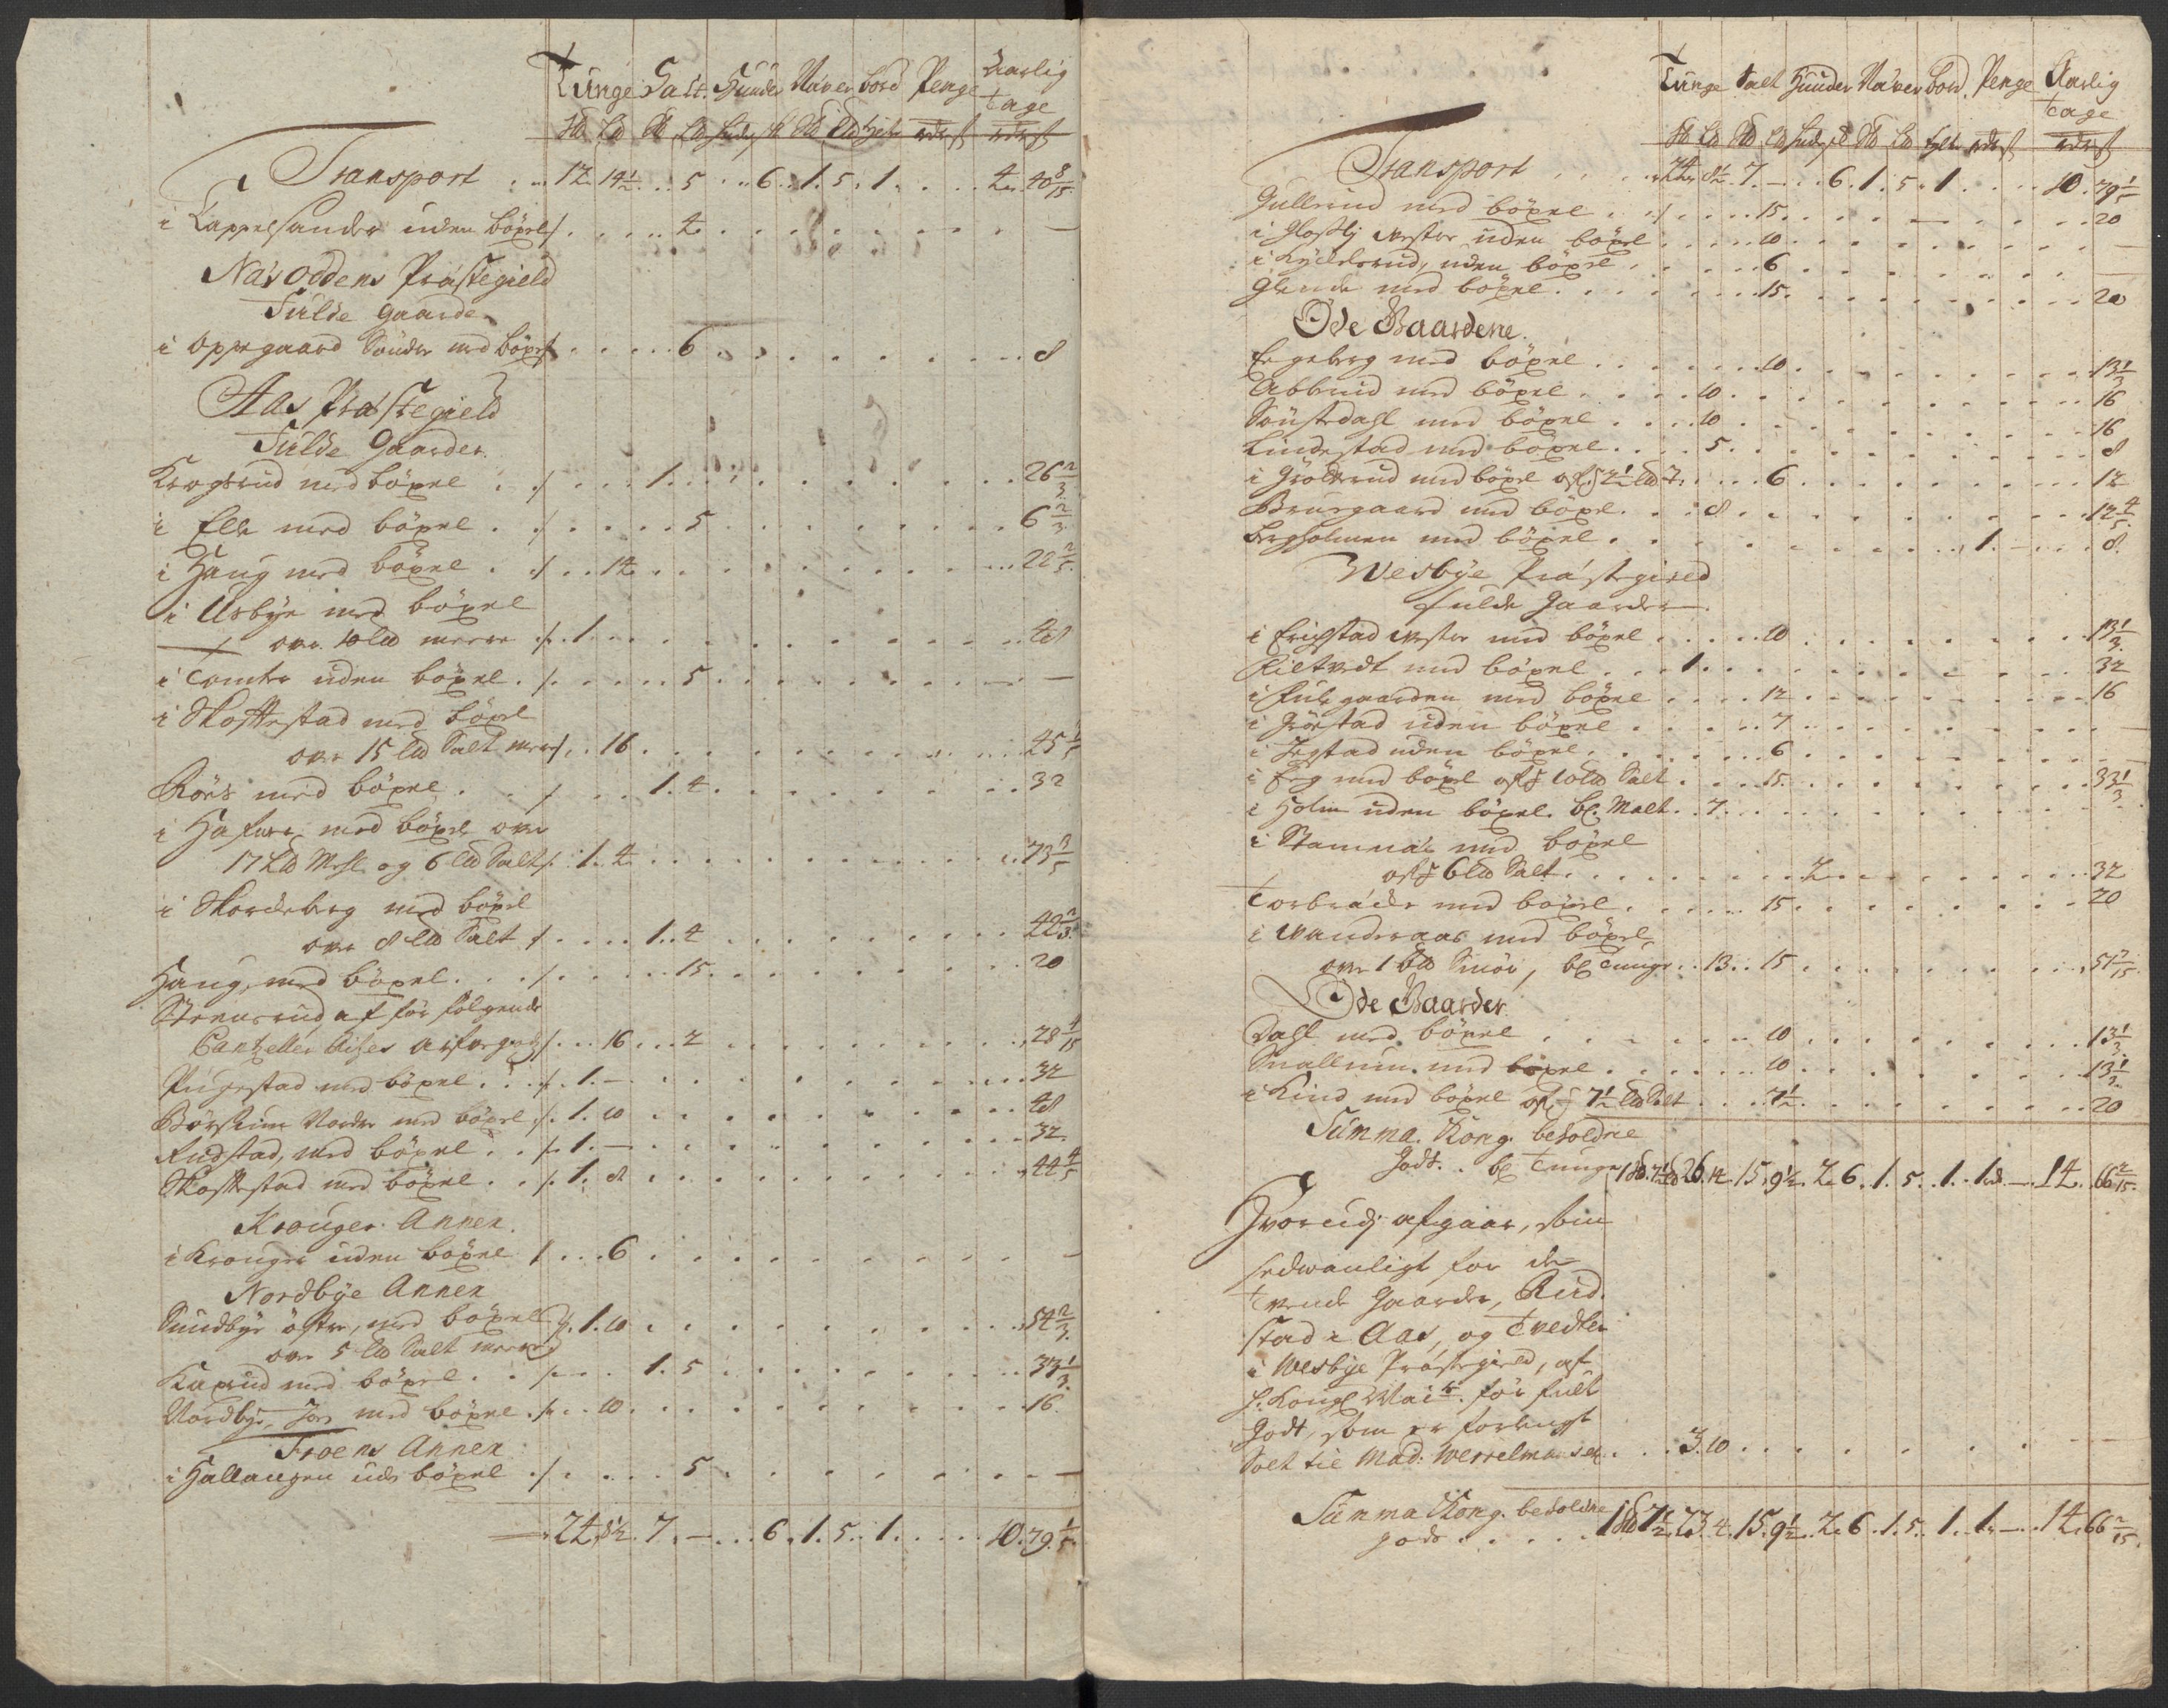 Tunge Salt. Huuder Næver bord Penge Aarlig
tage
Sk Ld Sk Ld
Transport . . 12. 14½ . . 5 . . . 6. 1. 5. 1. . . . 4. 40 8/15
i Kappelsanden uden böxel . . . . . 4 . . . . . . . . —
Næsoddens Præstegield
Fulde gaarde
i Oppegaard Sönder med böxel . . . . . 6 . . . . . . . . . 8
Aas Præstegield
Fulde Gaarder.
Krogsrud med böxel . . . . . 1 . . . . . . . . . 26 2/3
i Elle med böxel . . . . . . 5 . . . . . . . . . 6 2/3
i Haug med böxel . . . 14 . . . . . . . . . . 22 2/5
i Usbye med böxel
over 10 Ld meere . 1 . . . . . . . . . . . 48
i Tomter uden böxel . . . . . 5 . . . . . . . . —
i Skoftestad med böxel
over 15 Ld Salt meere . 16 . . . . . . . . . . . 45 1/5
Rörs med böxel . . . . 1. 4 . . . . . . . . . 32
i Hafuer med böxel over
17 Ld Mehl og 6 Ld Salt . 1. 4 . . . . . . . . . . . 73 3/5
i Skordeberg med böxel
over 8 Ld Salt . . . . 1. 4 . . . . . . . . . 42 2/3
Haug, med böxel . . . . . . 15 . . . . . . . . 20
Steensrud af for folgende
Cantzeller Aifes arfvegods . . 16 . . 2 . . . . . . . . . 28 4/15
Pugestad med böxel . . . 1. — . . . . . . . . . . 32
Börsum Nordre med böxel . 1. 10 . . . . . . . . . . . 48
Rudstad, med böxel . . 1. — . . . . . . . . . . 32.
Skoftestad med böxel . . 1. 8 . . . . . . . . . . 44 4/5
Kroüger Annex.
i Kroüger uden böxel . . . 6 . . . . . . . . . . . —
Nordbye Annex
Sundbye östre, med böxel
over 5 Ld Salt meere . 1. 10 . . . . . . . . . . . 54 2/3
Kaxrud med böxel . . . . 1. 5 . . . . . . . . . 33 1/3
Nordbye, Jon med böxel . . . 10 . . . . . . . . . . . 16
Froens Annex
i Hallangen uden böxel . . . . . 5 . . . . . . . . . —
— 24. 8½. 7. — . . 6. 1. 5. 1. . . . . 10. 79 1/5
Tunge Salt Huuder Næver bord. Penge Aarlig
tage
Transport . . . . 24. 8½. 7. — . . 6. 1. 5. 1. . . . 10. 79 1/5
Gullerud med böxel . . . . . 15 . . . . . . . . 20
i Glosli Vester uden böxel . . . . . 10 . . . . . . . . —
i Kylldsrud, uden böxel . . . . . 6 . . . . . . . . —
Glende med böxel . . . . . . 15 . . . . . . . . . 20
Öde Gaardene.
Egeberg med böxel . . . . . . 10 . . . . . . . . . 13 1/3
Abberud med böxel . . . . 10 . . . . . . . . . 16
Söustdahl med böxel . . . . 10 . . . . . . . . . 16
Lindestad med böxel . . . . 5 . . . . . . . . . 8
i Grölderud med böxel . . . . 6 . . . . . . . . 12
Bruusgaard med böxel . . . 8 . . . . . . . . . . 12 4/5
Bergholmen med böxel . . . . . . . . . . 1. — . . . 8.
Wesbye Præstegield
fulde Gaarder
i Erichstad Vester med böxel . . . . . 10 . . . . . . . . . 13 1/3
Kieltvedt med böxel . . . 1. . . . . . . . . . . 32
i Fulegaarden med böxel . . . . 12 . . . . . . . . 16
i Gröstad uden böxel . . . . . 7 . . . . . . . . —
i Jegstad uden böxel . . . . . . 6 . . . . . . . . —
i Erg med böxel og 10 Ld Salt . . . 15 . . . . . . . . . 33 1/3
i Holm uden böxel. bl. Malt . . 7. . . . . . . . . .
i Stamnæs med böxel
og 6 Ld Salt . . . . . . . . 2 . . . . . . . . 32
Torbræde med böxel . . . . . 15 . . . . . . . . . 20
i Wanderaas med böxel,
over 1 Ld Smör, bl Tunge . . 13 . . 15 . . . . . . . . . 51 7/15
Öde Gaarder
Dahl med böxel . . . . . . . 10 . . . . . . . . . 13 1/3
Snallrum med böxel . . . . . . . 10 . . . . . . . . . 13 1/3
i Kind med böxel og 7½ Ld Salt . . . 7½ . . . . . . . . 20
Summa. Kong. beholdne
Godt. . bl Tunge 26. 14. 15. 9½. 2. 6. 1. 5. 1. 1. — 14. 66 2/15.
Hvorudj afgaar, som
sedwanligt for de
tvende Gaarder, Rud-
stad i Aas, og Tvedter
i Wesbye Præstegield, af
H. Kongl Maits. for fult
Godt, som er forlengst
Solt til Mad: Werrelmansen . . . 3. 10 . . . . . . . . . —
Summa Kong. beholdne
gods . . . . 23. 4. 15. 9½. 2. 6. 1. 5. 1. 1. — . 14. 66 2/15.